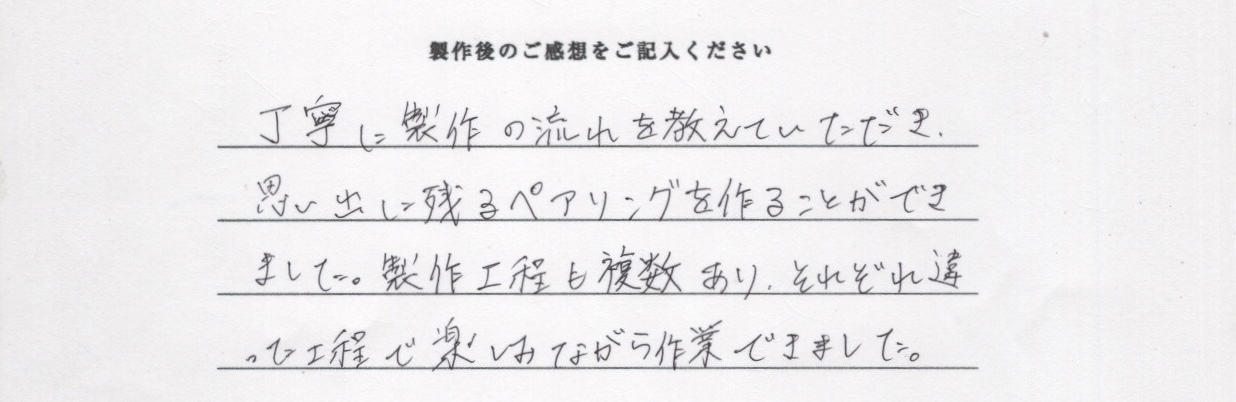 製作後のご感想をご記入ください
丁寧に製作の流れを教えていただき、
思い出に残るペアリングを作ることができ
ました。製作工程も複数あり、それぞれ違
った工程で楽しみながら作業できました。